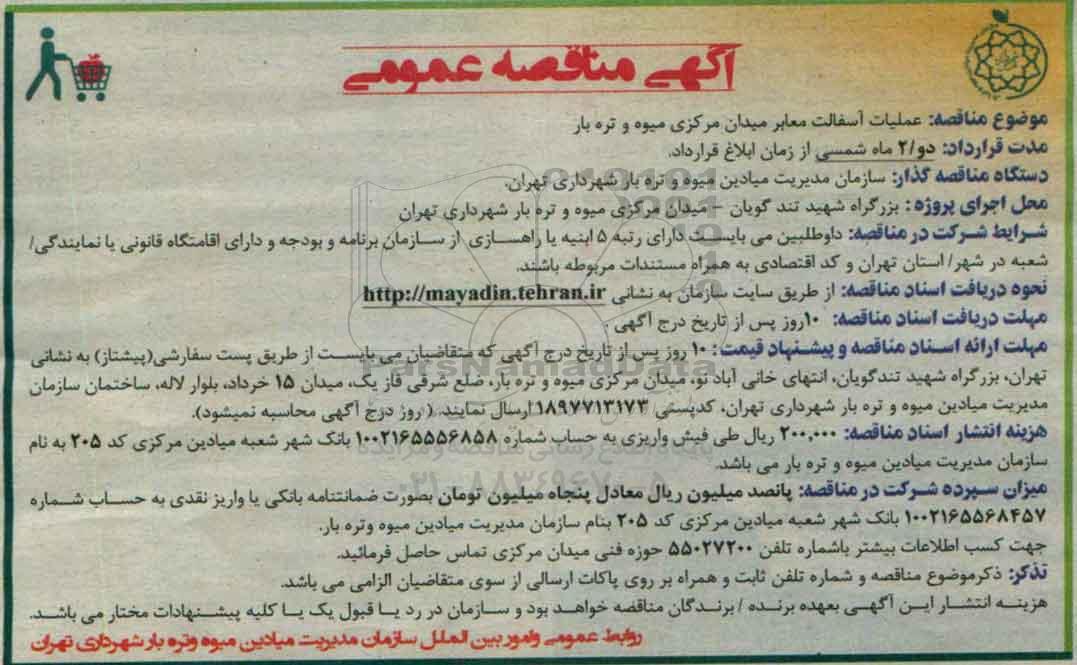 آگهی مناقصه عمومی
موضوع مناقصه: عملیات آسفالت معابر میدان مرکزی میوه و تره بار
مدت قرارداد: دو/۲ ماه شمسی از زمان ابلاغ قرارداد.
دستگاه مناقصه گذار: سازمان مدیریت میادین میوه و تره بار شهرداری تهران.
محل اجرای پروژه : بزرگراه شهید تند گویان – میدان مرکزی میوه و تره بار شهرداری تهران
شرایط شرکت در مناقصه: داوطلبین می بایست دارای رتبه ۵ ابنیه یا راهسازی از سازمان برنامه و بودجه و دارای اقامتگاه قانونی یا نمایندگی/
شعبه در شهر/ استان تهران و کد اقتصادی به همراه مستندات مربوطه باشند.
نحوه دریافت اسناد مناقصه: از طریق سایت سازمان به نشانی http://mayadin.tehran.ir
مهلت دریافت اسناد مناقصه: ۱۰روز پس از تاریخ درج آگهی .
مهلت ارائه اسناد مناقصه و پیشنهاد قیمت: ۱۰ روز پس از تاریخ درج آگهی که متقاضیان می بایست از طریق پست سفارشی(پیشتاز) به نشانی
تهران، بزرگراه شهید تندگویان، انتهای خانی آباد نو، میدان مرکزی میوه و تره بار، ضلع شرقی فاز یک، میدان ۱۵ خرداد، بلوار لاله، ساختمان سازمان
مدیریت میادین میوه و تره بار شهرداری تهران، کدپستی ۱۸۹۷۷۱۳۱۷۳ ارسال نمایند. ( روز درج آگهی محاسبه نمیشود).
هزینه انتشار اسناد مناقصه: ۲۰۰,۰۰۰ ریال طی فیش واریزی به حساب شماره ۱۰۰۲۱۶۵۵۵۶۸۵۸ بانک شهر شعبه میادین مرکزی کد ۲۰۵ به نام
سازمان مدیریت میادین میوه و تره بار می باشد.
میزان سپرده شرکت در مناقصه: پانصد میلیون ریال معادل پنجاه میلیون تومان بصورت ضمانتنامه بانکی یا واریز نقدی به حساب شماره
۱۰۰۲۱۶۵۵۶۸۴۵۷ بانک شهر شعبه میادین مرکزی کد ۲۰۵ بنام سازمان مدیریت میادین میوه وتره بار.
جهت کسب اطلاعات بیشتر باشماره تلفن ۵۵۰۲۷۲۰۰ حوزه فنی میدان مرکزی تماس حاصل فرمائید.
تذکر: ذکرموضوع مناقصه و شماره تلفن ثابت و همراه بر روی پاکات ارسالی از سوی متقاضیان الزامی می باشد.
هزینه انتشار این آگهی بعهده برنده / برندگان مناقصه خواهد بود و سازمان در رد یا قبول یک یا کلیه پیشنهادات مختار می باشد.
روابط عمومی وامور بین الملل سازمان مدیریت میادین میوه وتره بار شهرداری تهران
ParsNamadData
۰۲۱-۸۸۳۴۹۶۷۰-۵